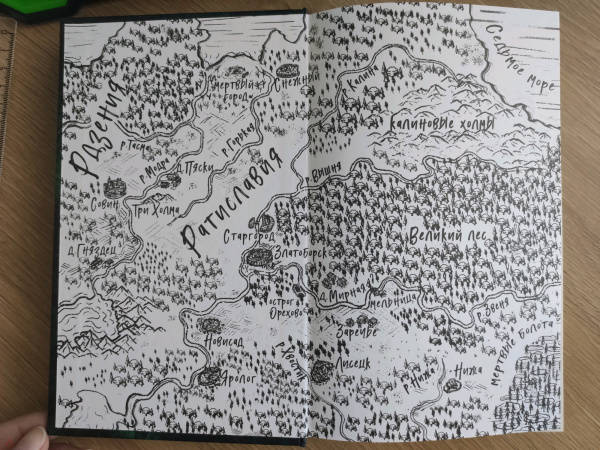 Рдзения
р. Тасма
р. Модра
Мертвый
город
Снежный
р. Горькая
д. Пяски
Совин
Три Холма
д. Гняздец
Ратиславия
Старгород
Златоборск
острог
Орехово
Новисад
Яролог
Седьмое море
Калиновые холмы
Вишня
Великий лес
д. Мирная
мельница
р. Звеня
Заречье
Лисецк
р. Нижа
Нижа
мертвые болота